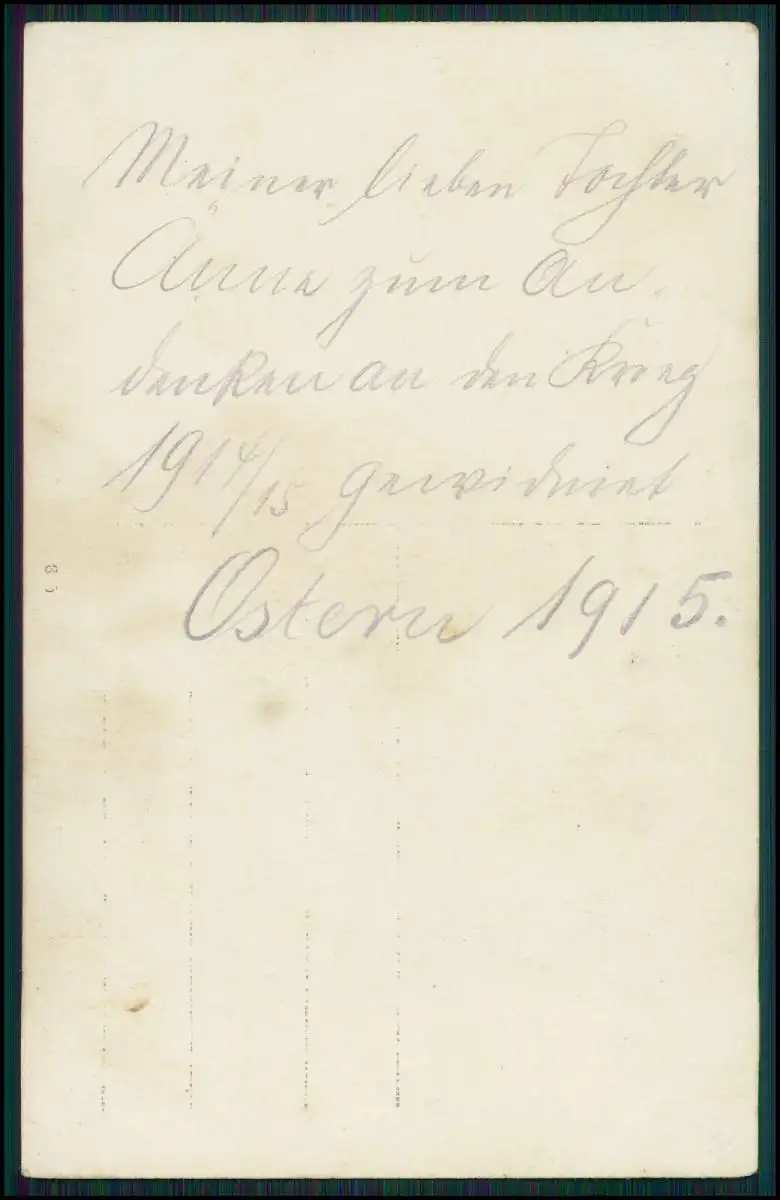 Meiner lieben Tochter
Änne zum An-
denken an den Krieg
1914/15 gewidmet
Ostern 1915.